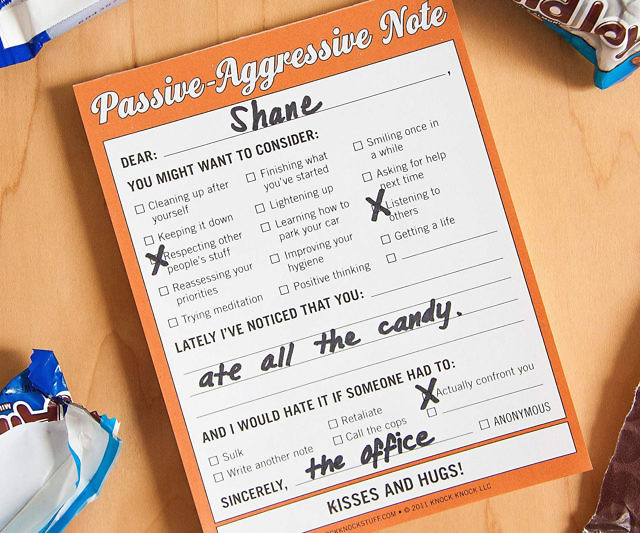 Passive-Aggressive Note
DEAR: Shane,
YOU MIGHT WANT TO CONSIDER:
Cleaning up after
yourself
Keeping it down
X Respecting other
people's stuff
Reassessing your
priorities
Trying meditation
Finishing what
you've started
Lightening up
Learning how to
park your car
Improving your
hygiene
Positive thinking
Smiling once in
a while
Asking for help
next time
X Listening to
others
Getting a life
LATELY I'VE NOTICED THAT YOU:
ate all the candy.
AND I WOULD HATE IT IF SOMEONE HAD TO:
Sulk
Write another note
Retaliate
Call the cops
X Actually confront you
SINCERELY, the office
ANONYMOUS
KISSES AND HUGS!
KNOCKSTUFF.COM • © 2011 KNOCK KNOCK LLC